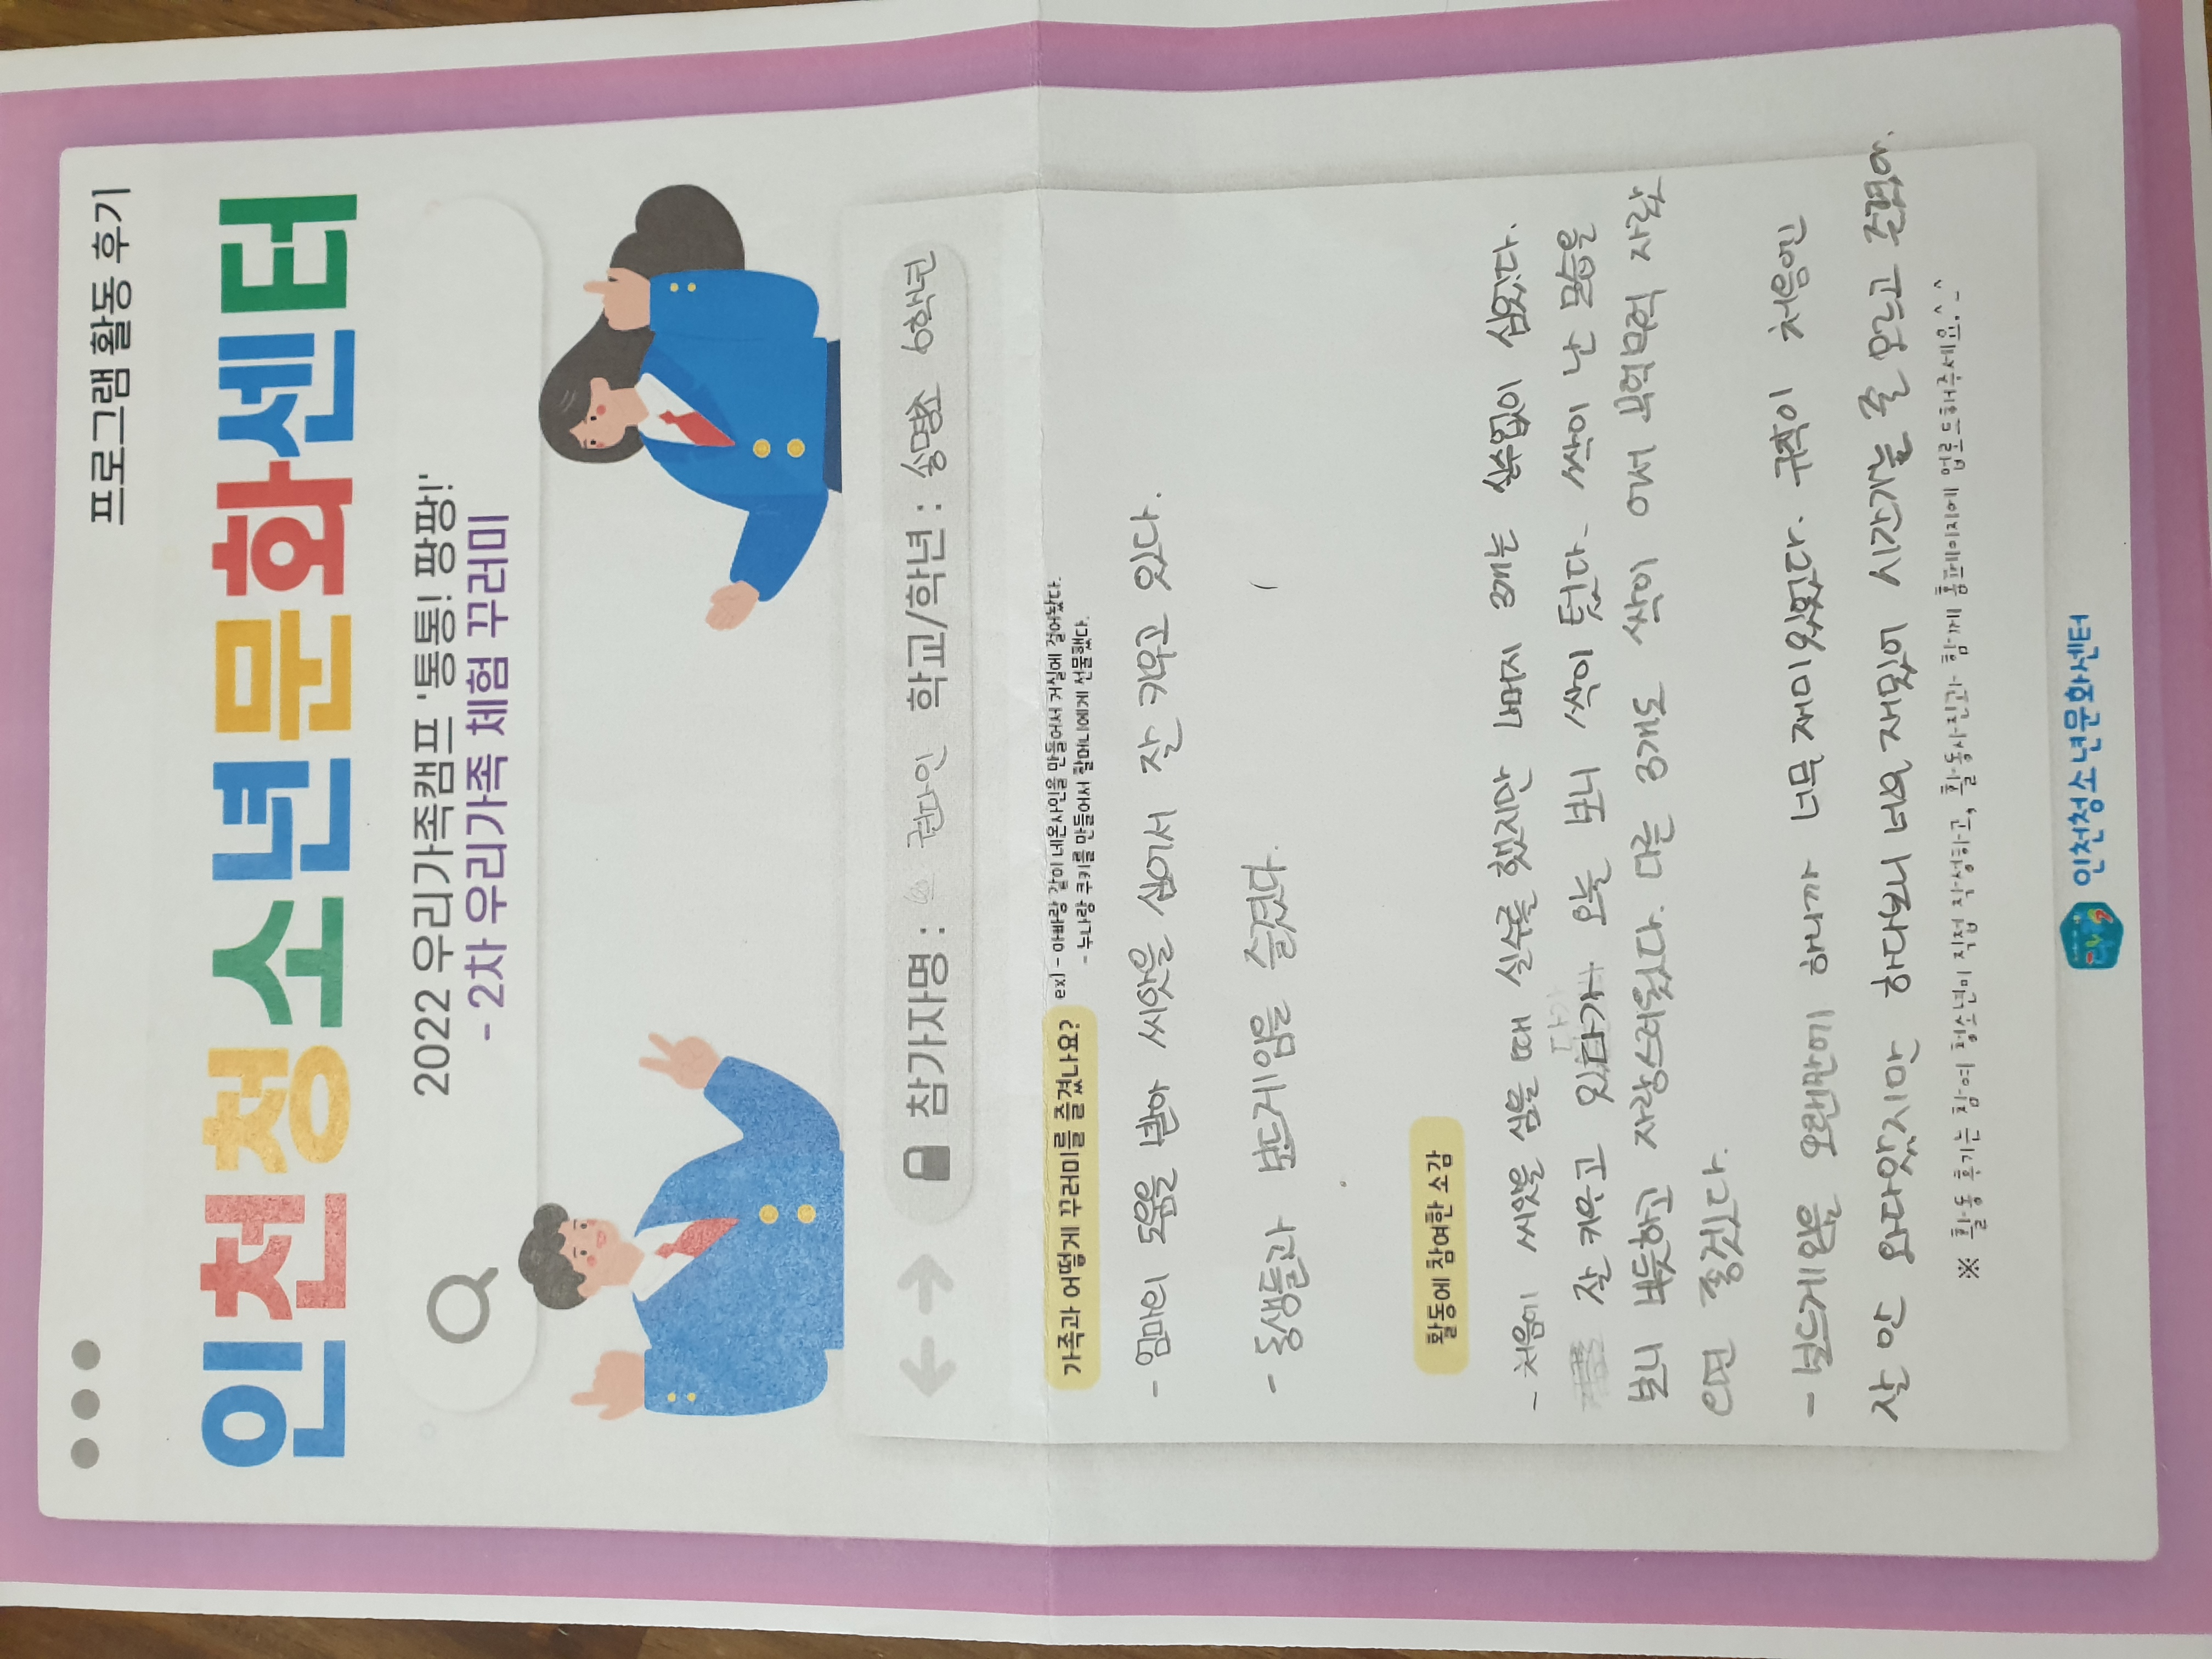 프로그램 활동 후기
인천청소년문화센터
2022 우리가족캠프 '통통! 팡팡!'
- 2차 우리가족 체험 꾸러미
참가자명 : 권다인 학교/학년 : 숭명초 6학년
가족과 어떻게 꾸러미를 즐겼나요? ex) - 아빠랑 같이 네온사인을 만들어서 거실에 걸어놨다.
- 누나랑 쿠키를 만들어서 할머니에게 선물했다.
- 엄마의 도움을 받아 씨앗을 심어서 잘 키우고 있다.
- 동생들과 보드게임을 즐겼다.
활동에 참여한 소감
- 처음에 씨앗을 심을 때 실수를 했지만 나머지 3개는 실수없이 심었다.
잘 키우고 있다가 오늘 보니 싹이 텄다. 싹이 난 모습을
보니 뿌듯하고 자랑스러웠다. 다른 3개도 싹이 어서 무럭무럭 자랐
으면 좋겠다.
- 보드게임을 오랜만에 하니까 너무 재미있었다. 규칙이 처음엔
잘 안 와다았지만 하다보니 너무 재밌어 시간가는 줄 모르고 했다.
※ 활동 후기는 참여 청소년이 직접 작성하고, 활동사진과 함께 홈페이지에 업로드해주세요.^_^
인천청소년문화센터